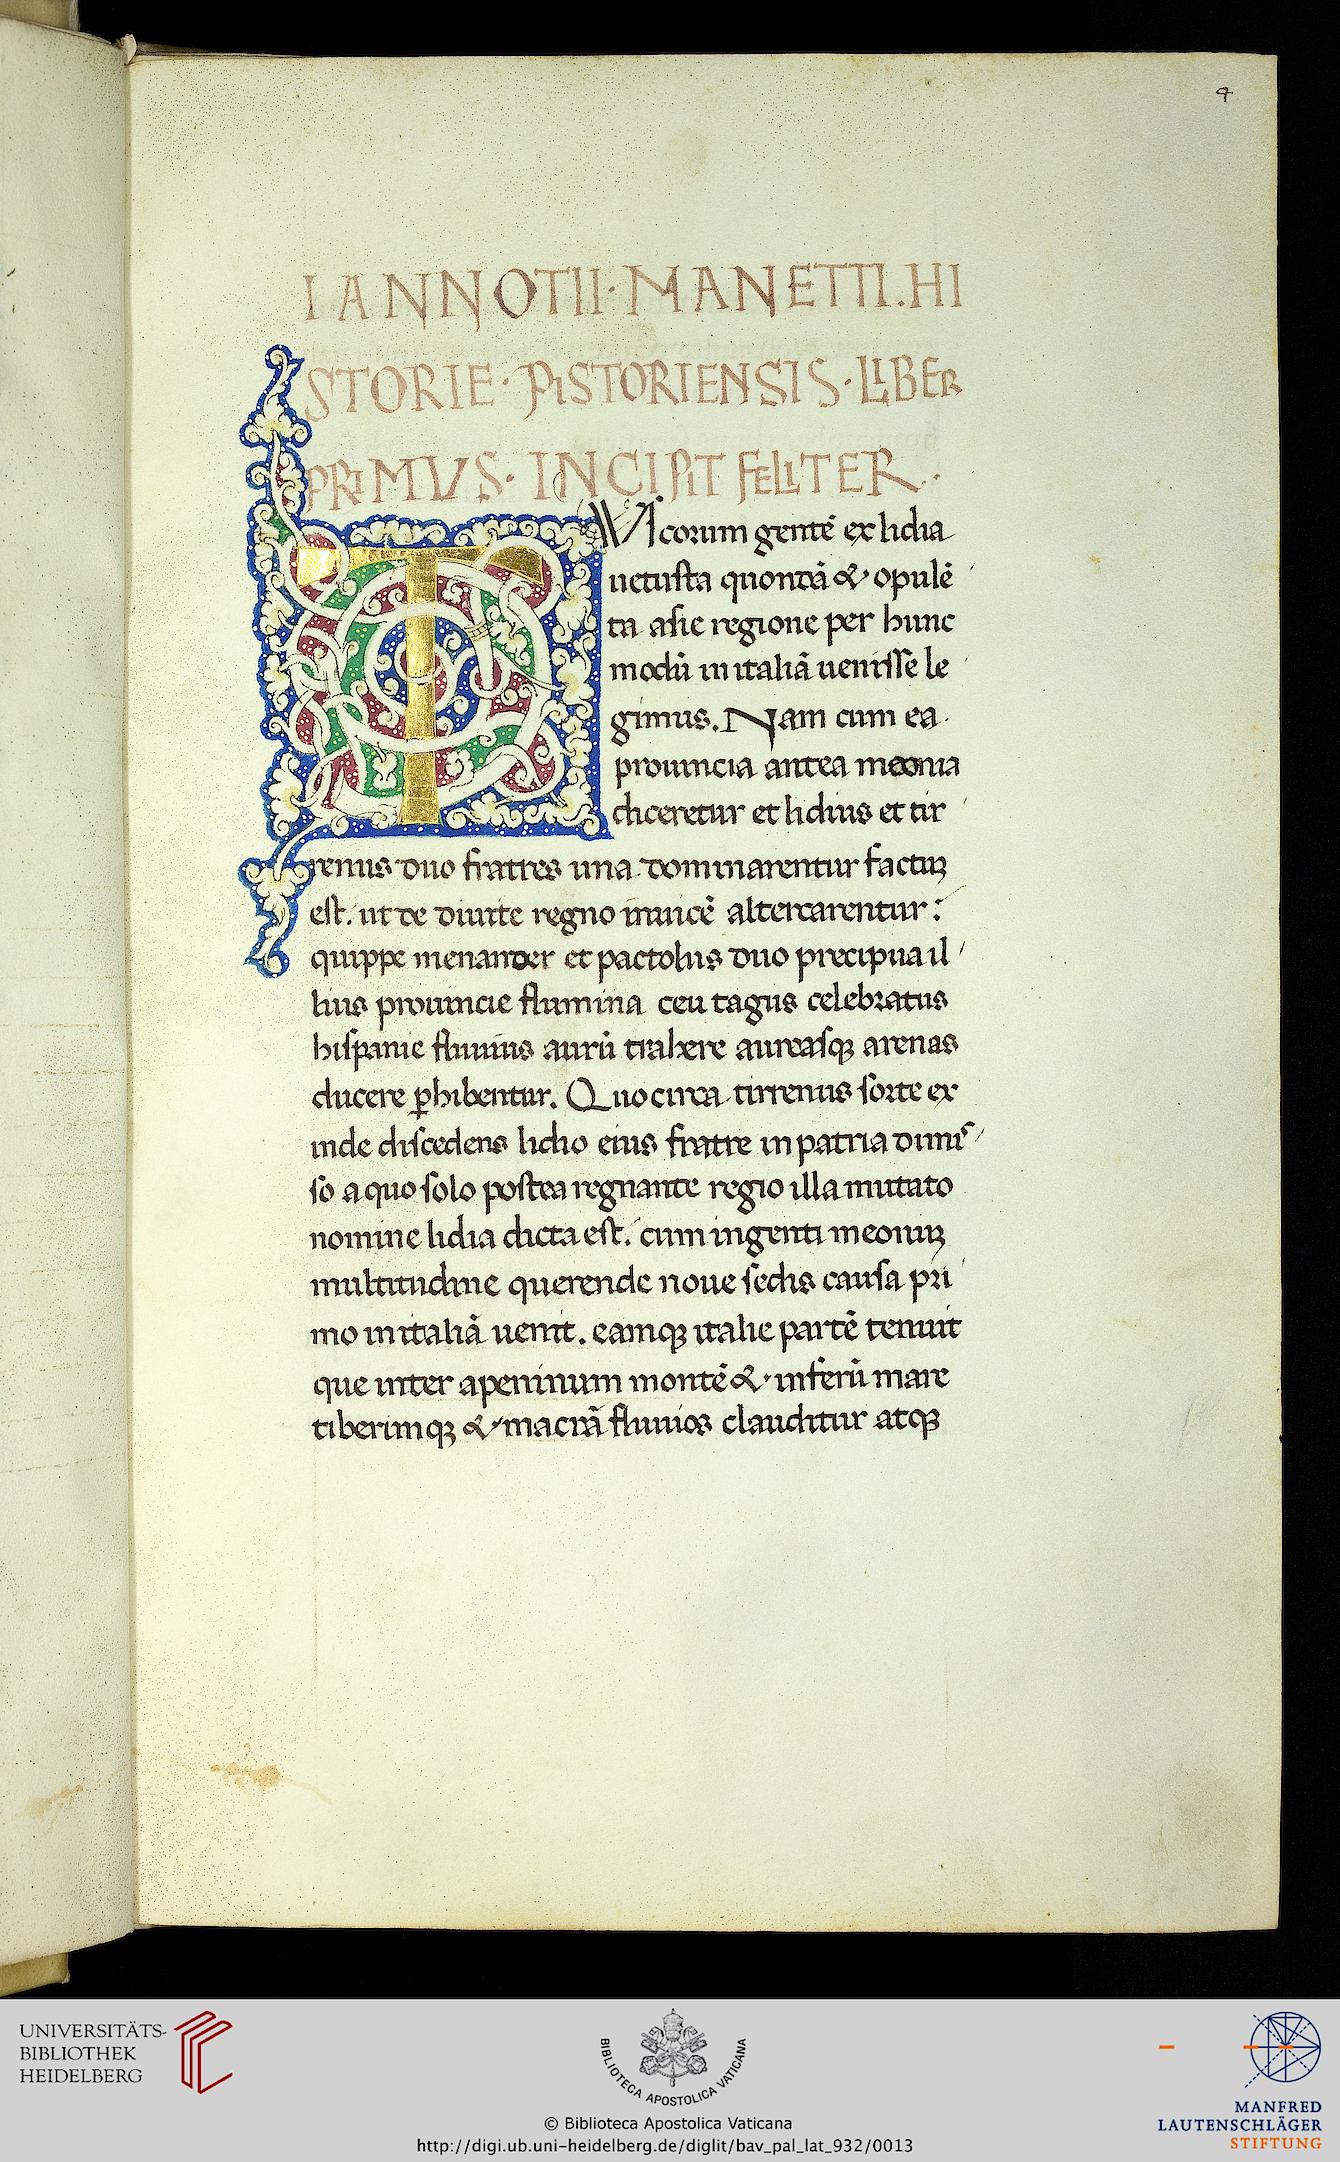 4
IANNOTII · MANETTI . HI
STORIE · PISTORIENSIS · LIBER
PRIMVS · INCIPIT FELITER ·
T Vscorum gentē ex lidia
uetusta quondā & opulē
ta asie regione per hunc
modū in italiā uenisse le
gimus. Nam cum ea
prouincia antea meonia
diceretur et lidius et tir
renus duo fratres una dominarentur factuꝫ
est. ut de diuite regno inuicē altercarentur:
quippe menander et pactolus duo precipua il
lius prouincie flumina ceu tagus celebratus
hispanie fluuius aurū trahere aureasqꝫ arenas
ducere ꝑhibentur. Quocirca tirrenus sorte ex
inde discedens lidio eius fratre in patria dimis
so a quo solo postea regnante regio illa mutato
nomine lidia dicta est. cum ingenti meonuꝫ
multitudine querende noue sedis causa pri
mo in italiā uenit. eamqꝫ italie partē tenuit
que inter apeninum montē & inferū mare
tiberimqꝫ & macrā fluuios clauditur atqꝫ
UNIVERSITÄTS-
BIBLIOTHEK
HEIDELBERG
BIBLIOTECA APOSTOLICA VATICANA
© Biblioteca Apostolica Vaticana
http://digi.ub.uni-heidelberg.de/diglit/bav_pal_lat_932/0013
MANFRED
LAUTENSCHLÄGER
STIFTUNG